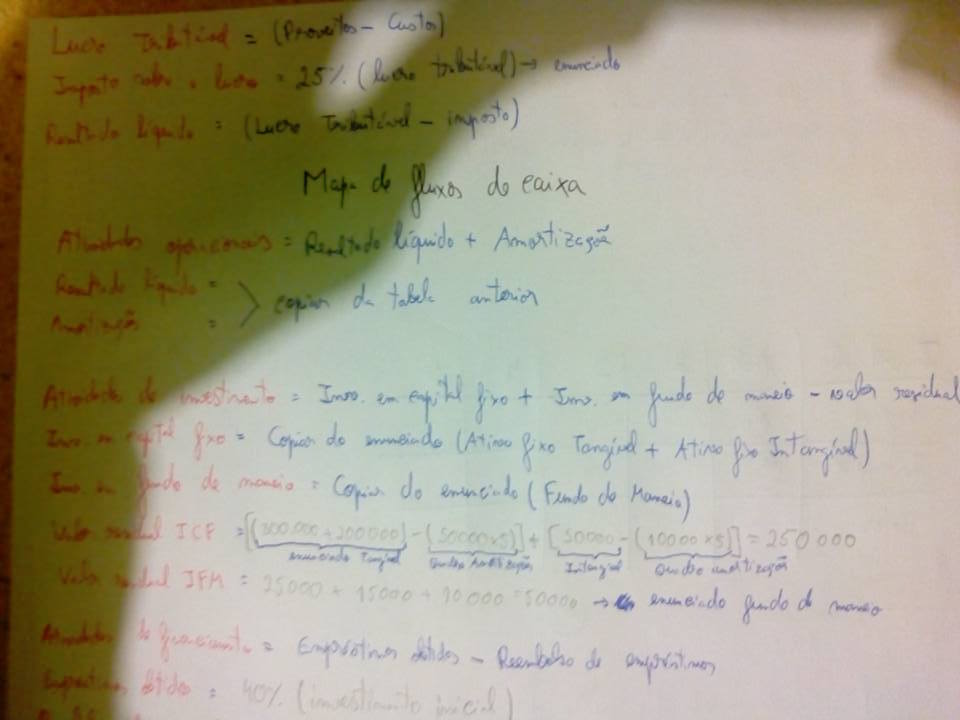 Lucro Tributável = (Proveitos - Custos)
Imposto sobre o lucro = 25% (lucro tributável) → enunciado
Resultado líquido = (Lucro Tributável - imposto)
Mapa de fluxos de caixa
Atividades operacionais = Resultado líquido + Amortização
Resultado líquido =
Amortização = > copiar da tabela anterior
Atividades de investimento = Inv. em capital fixo + Inv. em fundo de maneio - valor residual
Inv. em capital fixo = Copiar do enunciado (Ativo fixo Tangível + Ativo fixo Intangível)
Inv. em fundo de maneio = Copiar do enunciado (Fundo de Maneio)
Valor residual ICF = [(300.000 + 200000) - (50000x5)] + [50000 - (10000x5)] = 250000
enunciado Tangível Quadro Amortização Intangível Quadro amortização
Valor residual IFM = 25000 + 15000 + 10000 = 50000 → enunciado fundo de maneio
Atividades de financiamento = Empréstimos obtidos - Reembolso de empréstimos
Empréstimos obtidos = 40% (investimento inicial)